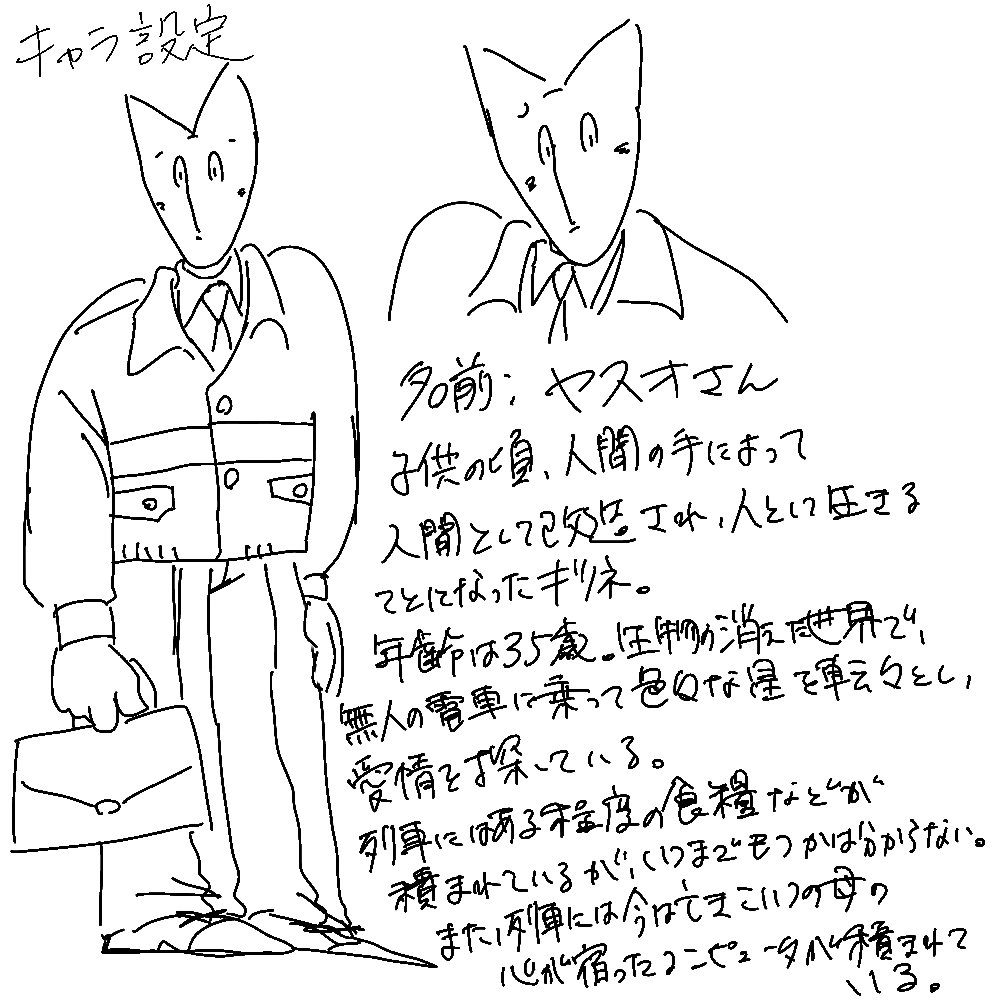 キャラ設定
名前: ヤスオさん
子供の頃、人間の手によって
人間として改造され、人として生きる
ことになったキツネ。
年齢は35歳。生物の消えた世界で、
無人の電車に乗って色々な星を転々とし、
愛情を探している。
列車にはある程度の食糧などが
積まれているが、いつまでもつかは分からない。
また、列車には今は亡きこいつの母の
心が宿ったコンピュータが積まれて
いる。